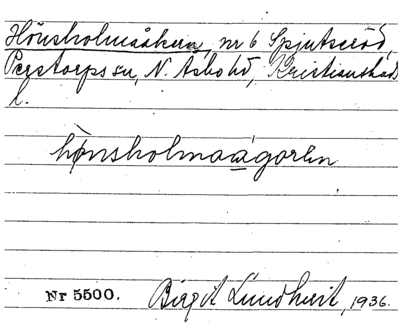 Hönsholmsåkern, nr 6 Spjutseröd,
Perstorps sn, N. Åsbo hd, Kristianstads
l.
hönsholmaågorln
Nr 5500. Birgit Lundkvist, 1936.